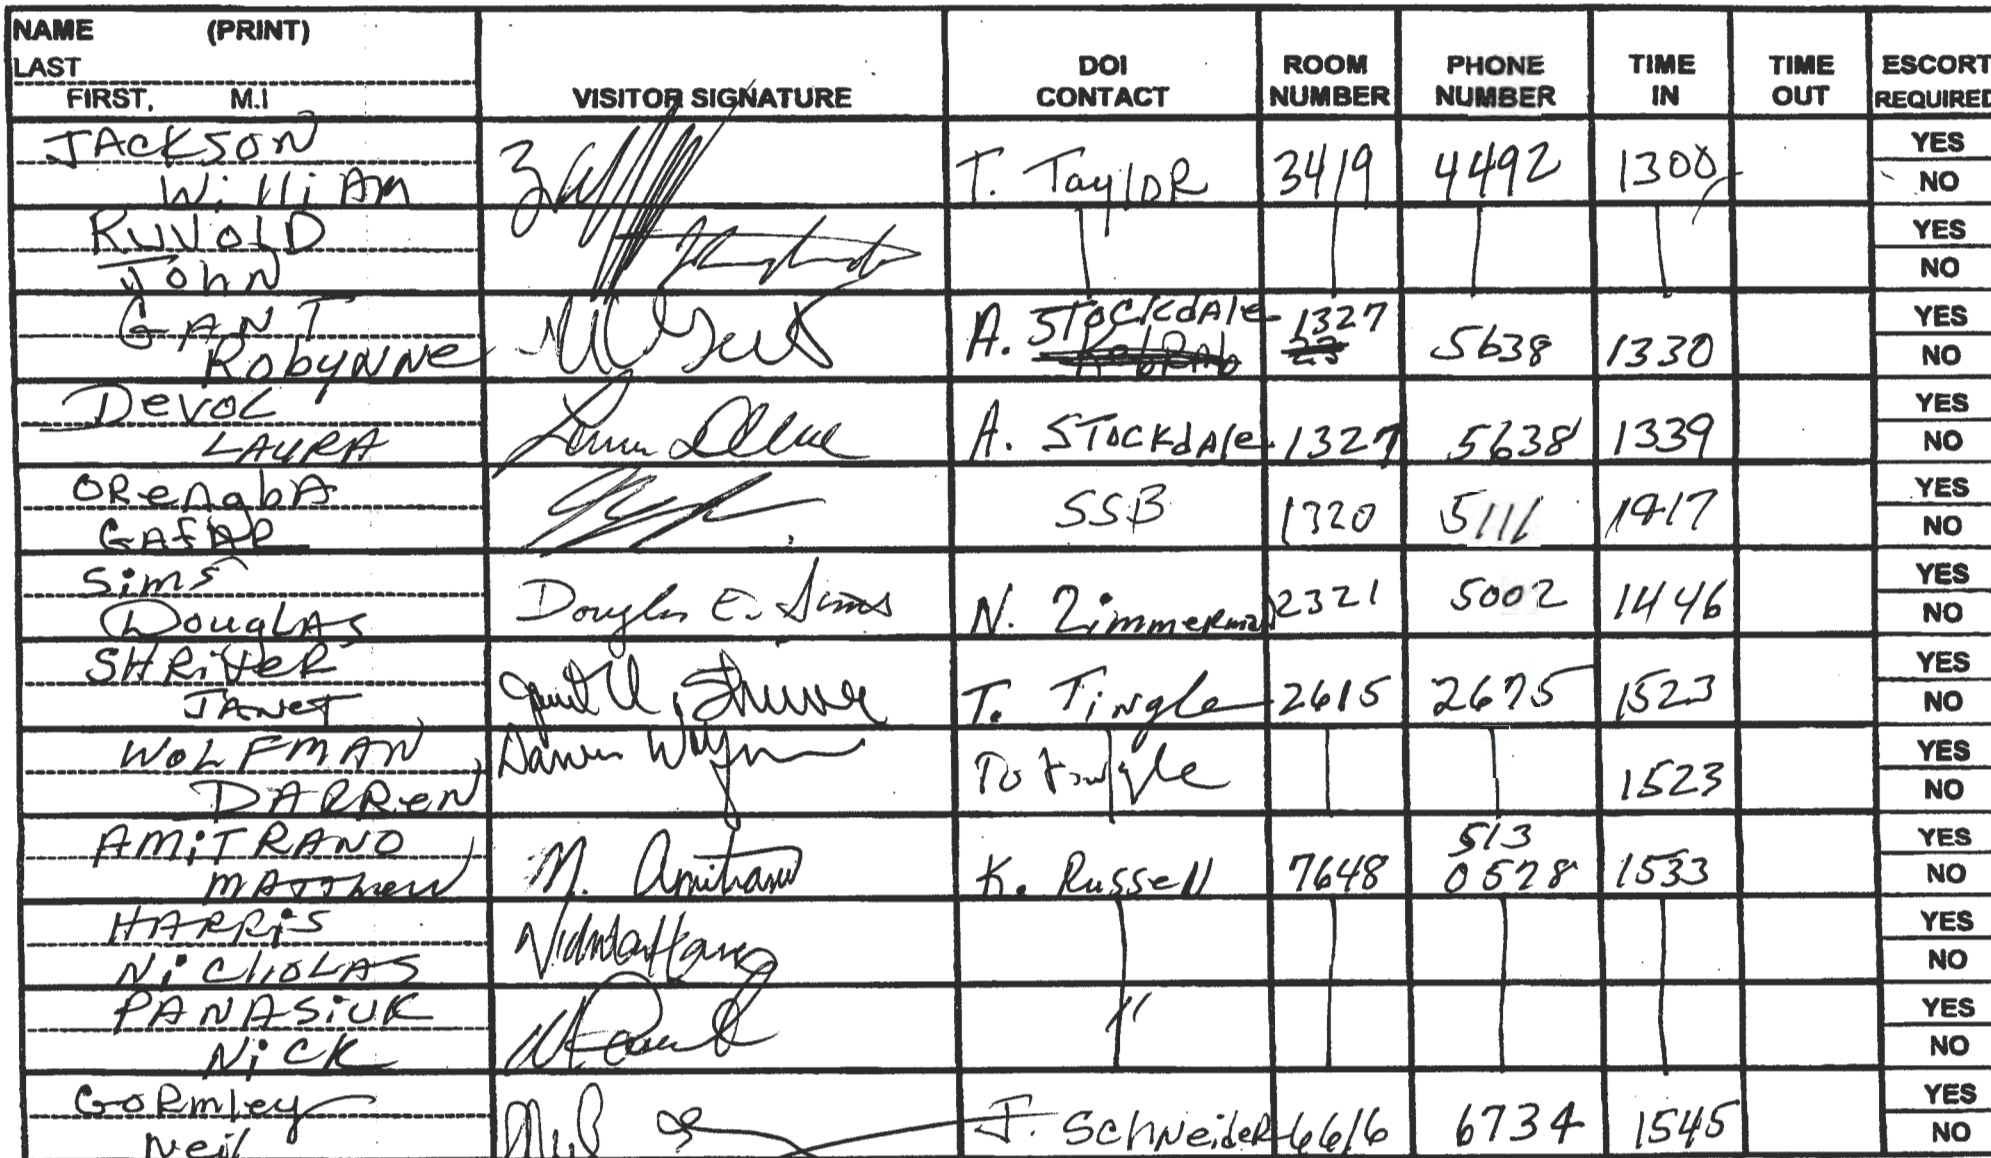 NAME (PRINT)
LAST
FIRST, M.I
VISITOR SIGNATURE
DOI CONTACT
ROOM NUMBER
PHONE NUMBER
TIME IN
TIME OUT
ESCORT REQUIRED
JACKSON
William T. Taylor 3419 4492 1300 YES NO
RUVOLD
John YES NO
GANT
Robynne A. Stockdale 1327 5638 1330 YES NO
DEVOL
LAURA A. Stockdale 1327 5638 1339 YES NO
ORengbA
GAfAR SSB 1320 5111 1417 YES NO
Sims
Douglas Douglas E. Sims N. Zimmerman 2321 5002 1446 YES NO
SHRiVeR
JANeT T. Tingle 2615 2675 1523 YES NO
WOLFMAN
DARReN To Tingle 1523 YES NO
AMiTRANO
MATThew M. Amitrano K. Russell 7648 513 0528 1533 YES NO
HARRiS
NiCHOLAS YES NO
PANASiUK
NiCK " YES NO
GoRmley
Neil J. Schneider 6616 6734 1545 YES NO